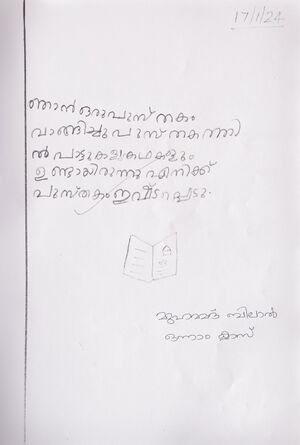 17/1/24
ഞാൻ ഒരു പുസ്തകം
വാങ്ങിച്ചു പുസ്തകത്തി
ൽ പാട്ടുകളുകഥകളും
ഉണ്ടായിരുന്നു എനിക്ക്
പുസ്തകം ഇഷ്ടപ്പെട്ടു.
മുഹമ്മദ് ബിലാൽ
ഒന്നാം ക്ലാസ്